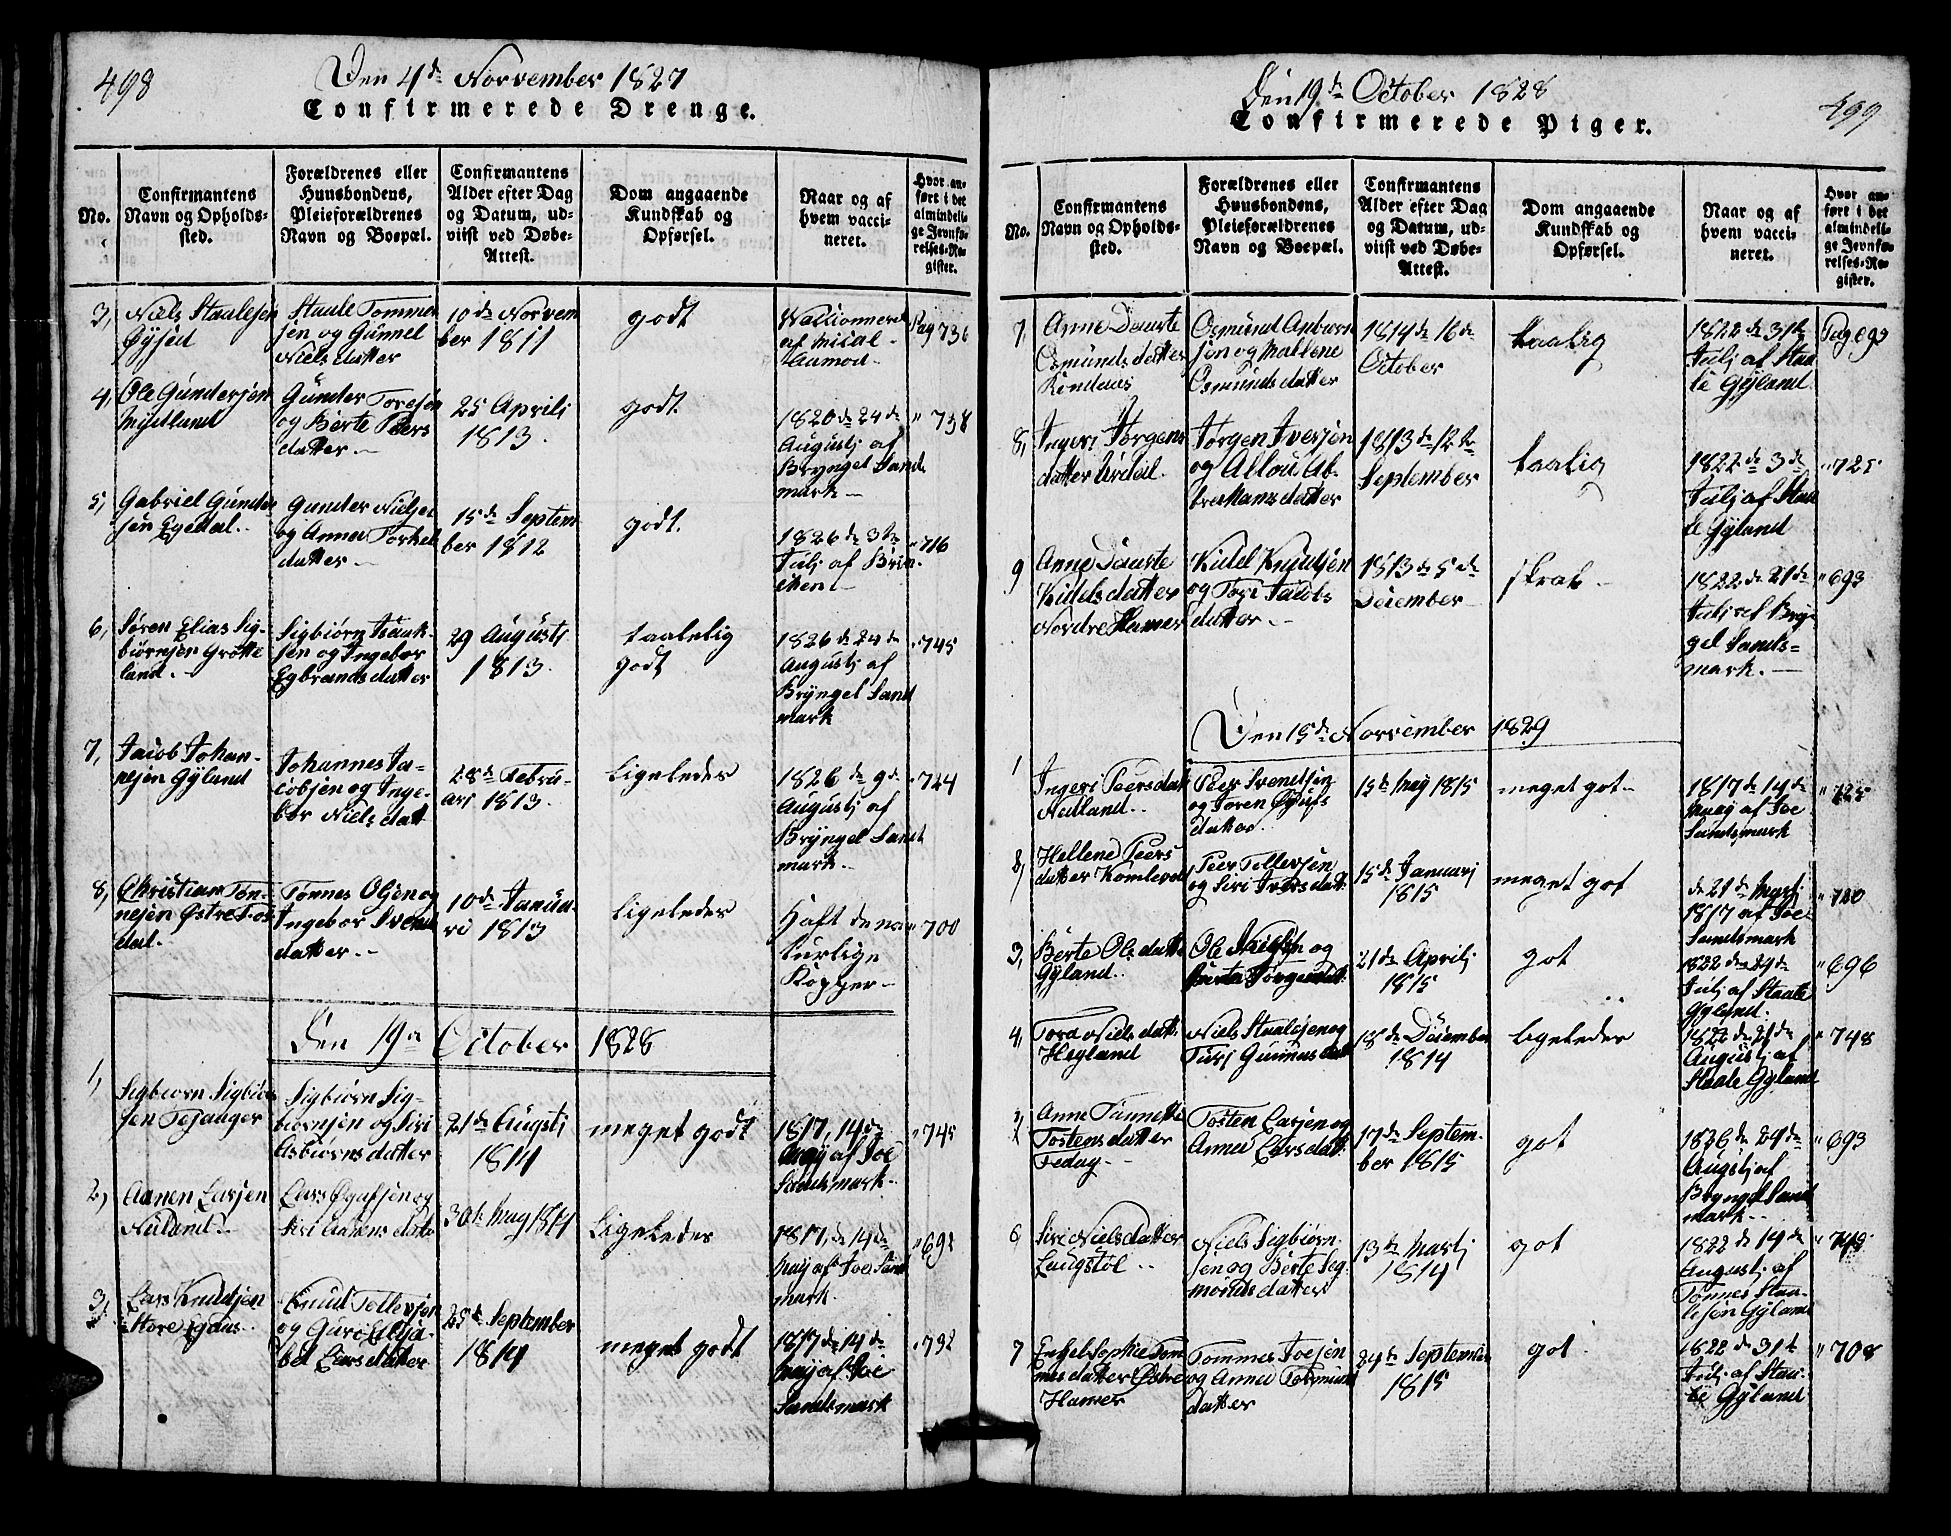 498
Den 4de Norvember 1827
Confirmerede Drenge.
No.
Confirmantens
Navn og Opholds-
sted.
Forældrenes eller
Huusbondens,
Pleieforældrenes
Navn og Boepæl.
Confirmantens
Alder efter Dag
og Datum, ud-
viist ved Døbe-
Attest.
Dom angaaende
Kundskab og
Opførsel.
Naar og af
hvem vacci-
neret.
Hvor an-
ført i det
almindeli-
ge Jevnfø-
relses-Re-
gister.
3,
Niels Staalesen
Øysæd
Staale Tomme
sen og Gunnel
Niels datter
10de Norvem
ber 1811
godt
af
Pag 736
4,
Ole Gundersen
Mydland
Gunder Toresen
og Berte Peers
datter
25 Aprili
1813.
godt
1820 de 24 de
Augustj af
Bryngel Sand
mark
" 738
5,
Gabriel Gunder
sen Egedal.
Gunder Nielsen
og Anna Torkel
datter
15de Septem
ber 1812
godt.
1826 de 3te
Julj af
" 716
6,
Søren Elias Sig-
biørnsen Grøtte
land.
Sigbiørn Isaak-
sen og Ingebor
Egbrands datter
29 Augustj
1813.
taalelig
godt
1826 de 24 de
Augustj af
Bryngel Sand
mark
" 745
7,
Jacob Johan-
nesen Gyland
Johannes Ja-
cobsen og Inge-
bor Niels dat
28de Febru-
arj 1813.
Ligeledes
1826 de 9de
Augustj af
Bryngel Sand
mark.
" 724
8,
Christian Tøn-
nesen Østre Fos
dal.
Tønnes Olsen og
Ingebor Svend
datter
10de Janua-
ri 1813
Ligeledes
Haft de na-
turlige
Kopper
" 700
Den 19de October 1828
1,
Sigbiørn Sigbiør
sen Tesanger
Sigbiørn Sig-
biørnsen og Siri
Asbiørns datter
21de Augstj
1814
meget godt
1817, 14de
May af Joe
Sandsmark.
" 745
2,
Aanen Larsen
Nuland
Lars Øgufsen og
Siri Aanens datt
30te May 1814
Ligeledes
1817, de 14de
May af Joe Sand
mark.
" 692
3,
Lars Knudsen
Store Egaas
Knud Tollevsen
og Guro Elisa-
bet Lars datter
25te September
1814
meget godt
1817 de 14 de
May af Joe
Sandsmark
" 732
499
Den 19de October 1828
Confirmerede Piger.
No.
Confirmantens
Navn og Opholds-
sted.
Forældrenes eller
Huusbondens,
Pleieforældrenes
Navn og Boepæl.
Confirmantens
Alder efter Dag
og Datum, ud-
viist ved Døbe-
Attest.
Dom angaaende
Kundskab og
Opførsel.
Naar og af
hvem vacci-
neret.
Hvor an-
ført i det
almindeli-
ge Jevnfø-
relses-Re-
gister.
7,
Anne Daarte
Osmunds datter
Røndaas
Osmund Asbiørn
sen og Mallene
Osmunds datter
1814 de 16de
October
taalig
1822 de 31te
Julj af Staa
le Gyland
Pag 692
8,
Ingeri Jørgens
datter Urdal.
Jørgen Iversen
og
datter
1813 de 12te
September
taalig
1822 de 3de
Julj af Staa
le Gyland
" 725
9
Anne Daarte
Kidels datter
Nordre Hamer
Kidel Knudsen
og Tori Jacobs
datter.
1813 de 5de
December
skral
1822 de 21de
Julj af Bryn
gel Sands=
mark.
" 693
Den 15de Norvember 1829
1
Ingeri Peers dat
Nedland.
Peer Svendsen
og Joren Øgufs
datter
15de May 1815
meget got
1817 de 14de
Maaj af Joe
Sandsmark
" 725
8,
Hellene Peers
datter Komlevold
Peer Tollevsen
og Siri Ivers dat.
15de Januarj
1815
meget got
de 21de Martj
1817 af Joe
Sandsmark
" 720
3,
Berte Ols datt
Gyland.
Ole og
21de Aprilj
1815
got
1822 de 29de
Julj af Staale
Gyland.
" 696
4,
Tora Niels datt.
Hegland
Niels Staalesen og
Turj Gunnus datt
18de December
1814
ligeledes
1822 de 21de
Augustj af
Staale Gyland
" 748
Anne Tonnette
Tostens datter
Fedog
Tosten Larsen og
Anna Lars datt.
17de Septem-
ber 1815
got
1826 de 29de
Augstj af
Bryngel Sand
mark
" 693
6,
Siri Niels datter
Laugstøl
Niels Sigbiørn-
sen og Berte Seg-
monds datter
13de Martj
1814
got
1822 de 14de
Augustj af
Tønnes Staa-
lesen Gyland
" 748
7
Engel Sophie Tom
mes datter Østre
Hamer
Tommes Joesen
og Anna Tormund
datter
24de September
1815
got
1822 de 31te
Julj af Staa-
le Gyland
" 708